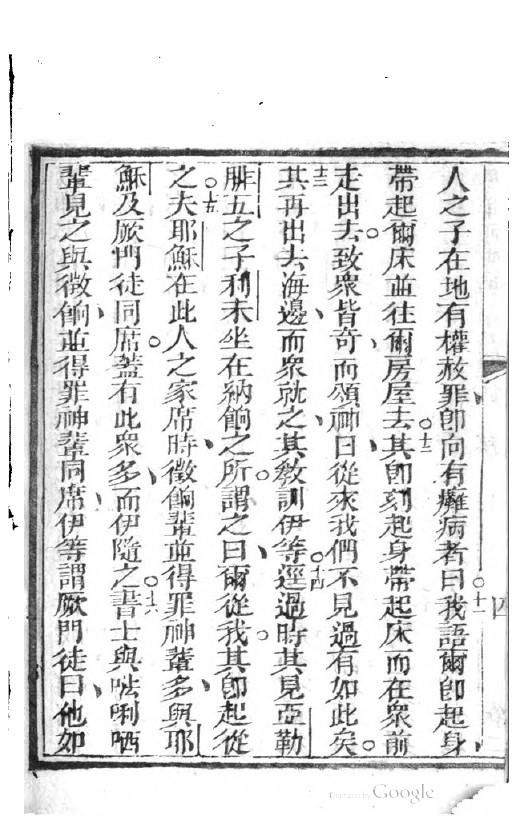 人之子在地有權赦罪卽向有癱病者曰○十一我語爾卽起身
帶起爾床並往爾房屋去○十二其卽刻起身帶起床而在衆前
走出去○致衆皆奇而頌神曰從來我們不見過有如此矣○
十三其再出去海邊而衆就之其敎訓伊等○十四逕過時其見亞勒
腓五之子利未坐在納餉之所○謂之曰爾從我○其卽起從
之○十五夫耶穌在此人之家席時徵餉輩並得罪神輩多與耶
穌及厥門徒同席○蓋有此衆多而伊隨之○十六書士與𠵽唎哂
輩見之與徵餉並得罪神輩同席伊等謂厥門徒曰他如
四
Digitized by Google